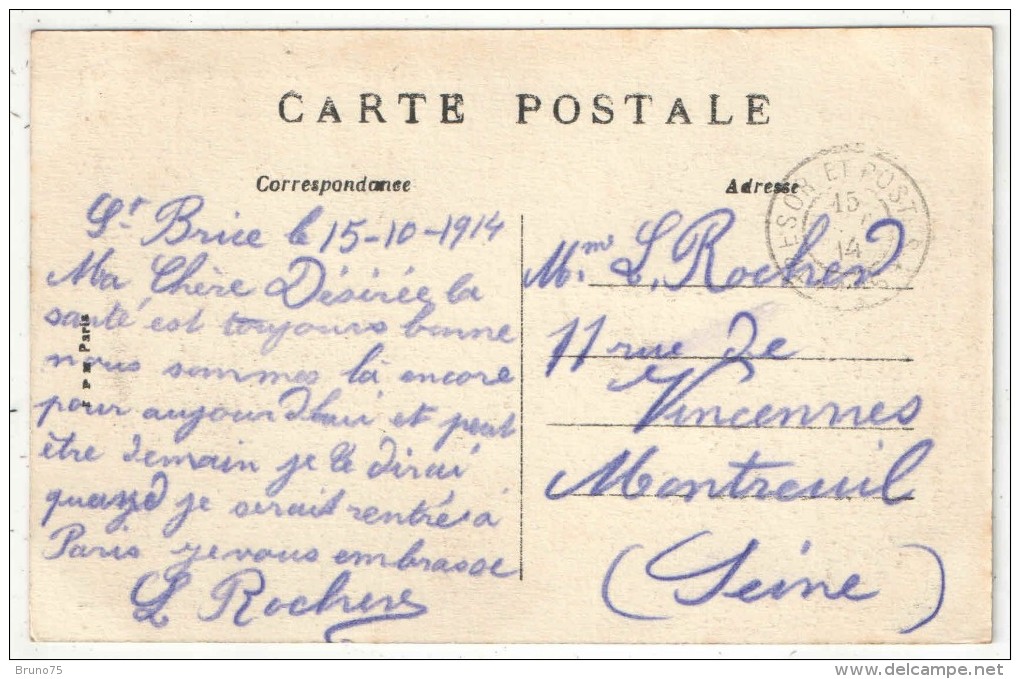 CARTE POSTALE
Correspondance
Adresse
TRESOR ET POSTES
15
14
St Brice le 15-10-1914
Ma Chère Désirée la
santé est toujours bonne
nous sommes là encore
pour aujourd'hui et peut
être demain je te dirai
quand je serait rentré à
Paris je vous embrasse
L Rocher
Mme L. Rocher
11 rue de
Vincennes
Montreuil
(Seine)
Paris
Bruno75
www.delcampe.net